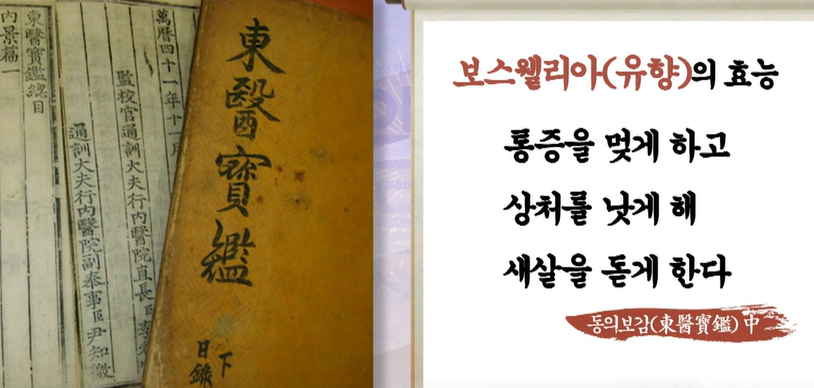 東醫寶鑑總目
內景篇一
萬曆四十一年十一月
監校官通訓大夫行內醫院直長臣李
通訓大夫行內醫院副奉事臣尹知微
東醫寶鑑
目錄
下
보스웰리아(유향)의 효능
통증을 멎게 하고
상처를 낫게 해
새살을 돋게 한다
동의보감(東醫寶鑑) 中